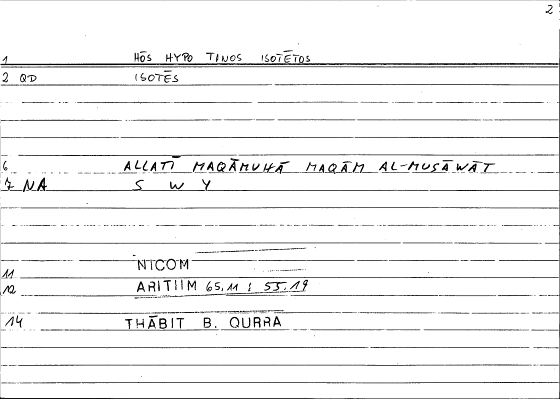 2
1 HŌS HYPO TINOS ISOTĒTOS
2 QD ISOTĒS
6 ALLATĪ MAQĀMUHĀ MAQĀM AL-MUSĀWĀT
7 NA S W Y
11 NICOM
12 ARITIIM 65.11 : 55.19
14 THĀBIT B. QURRA